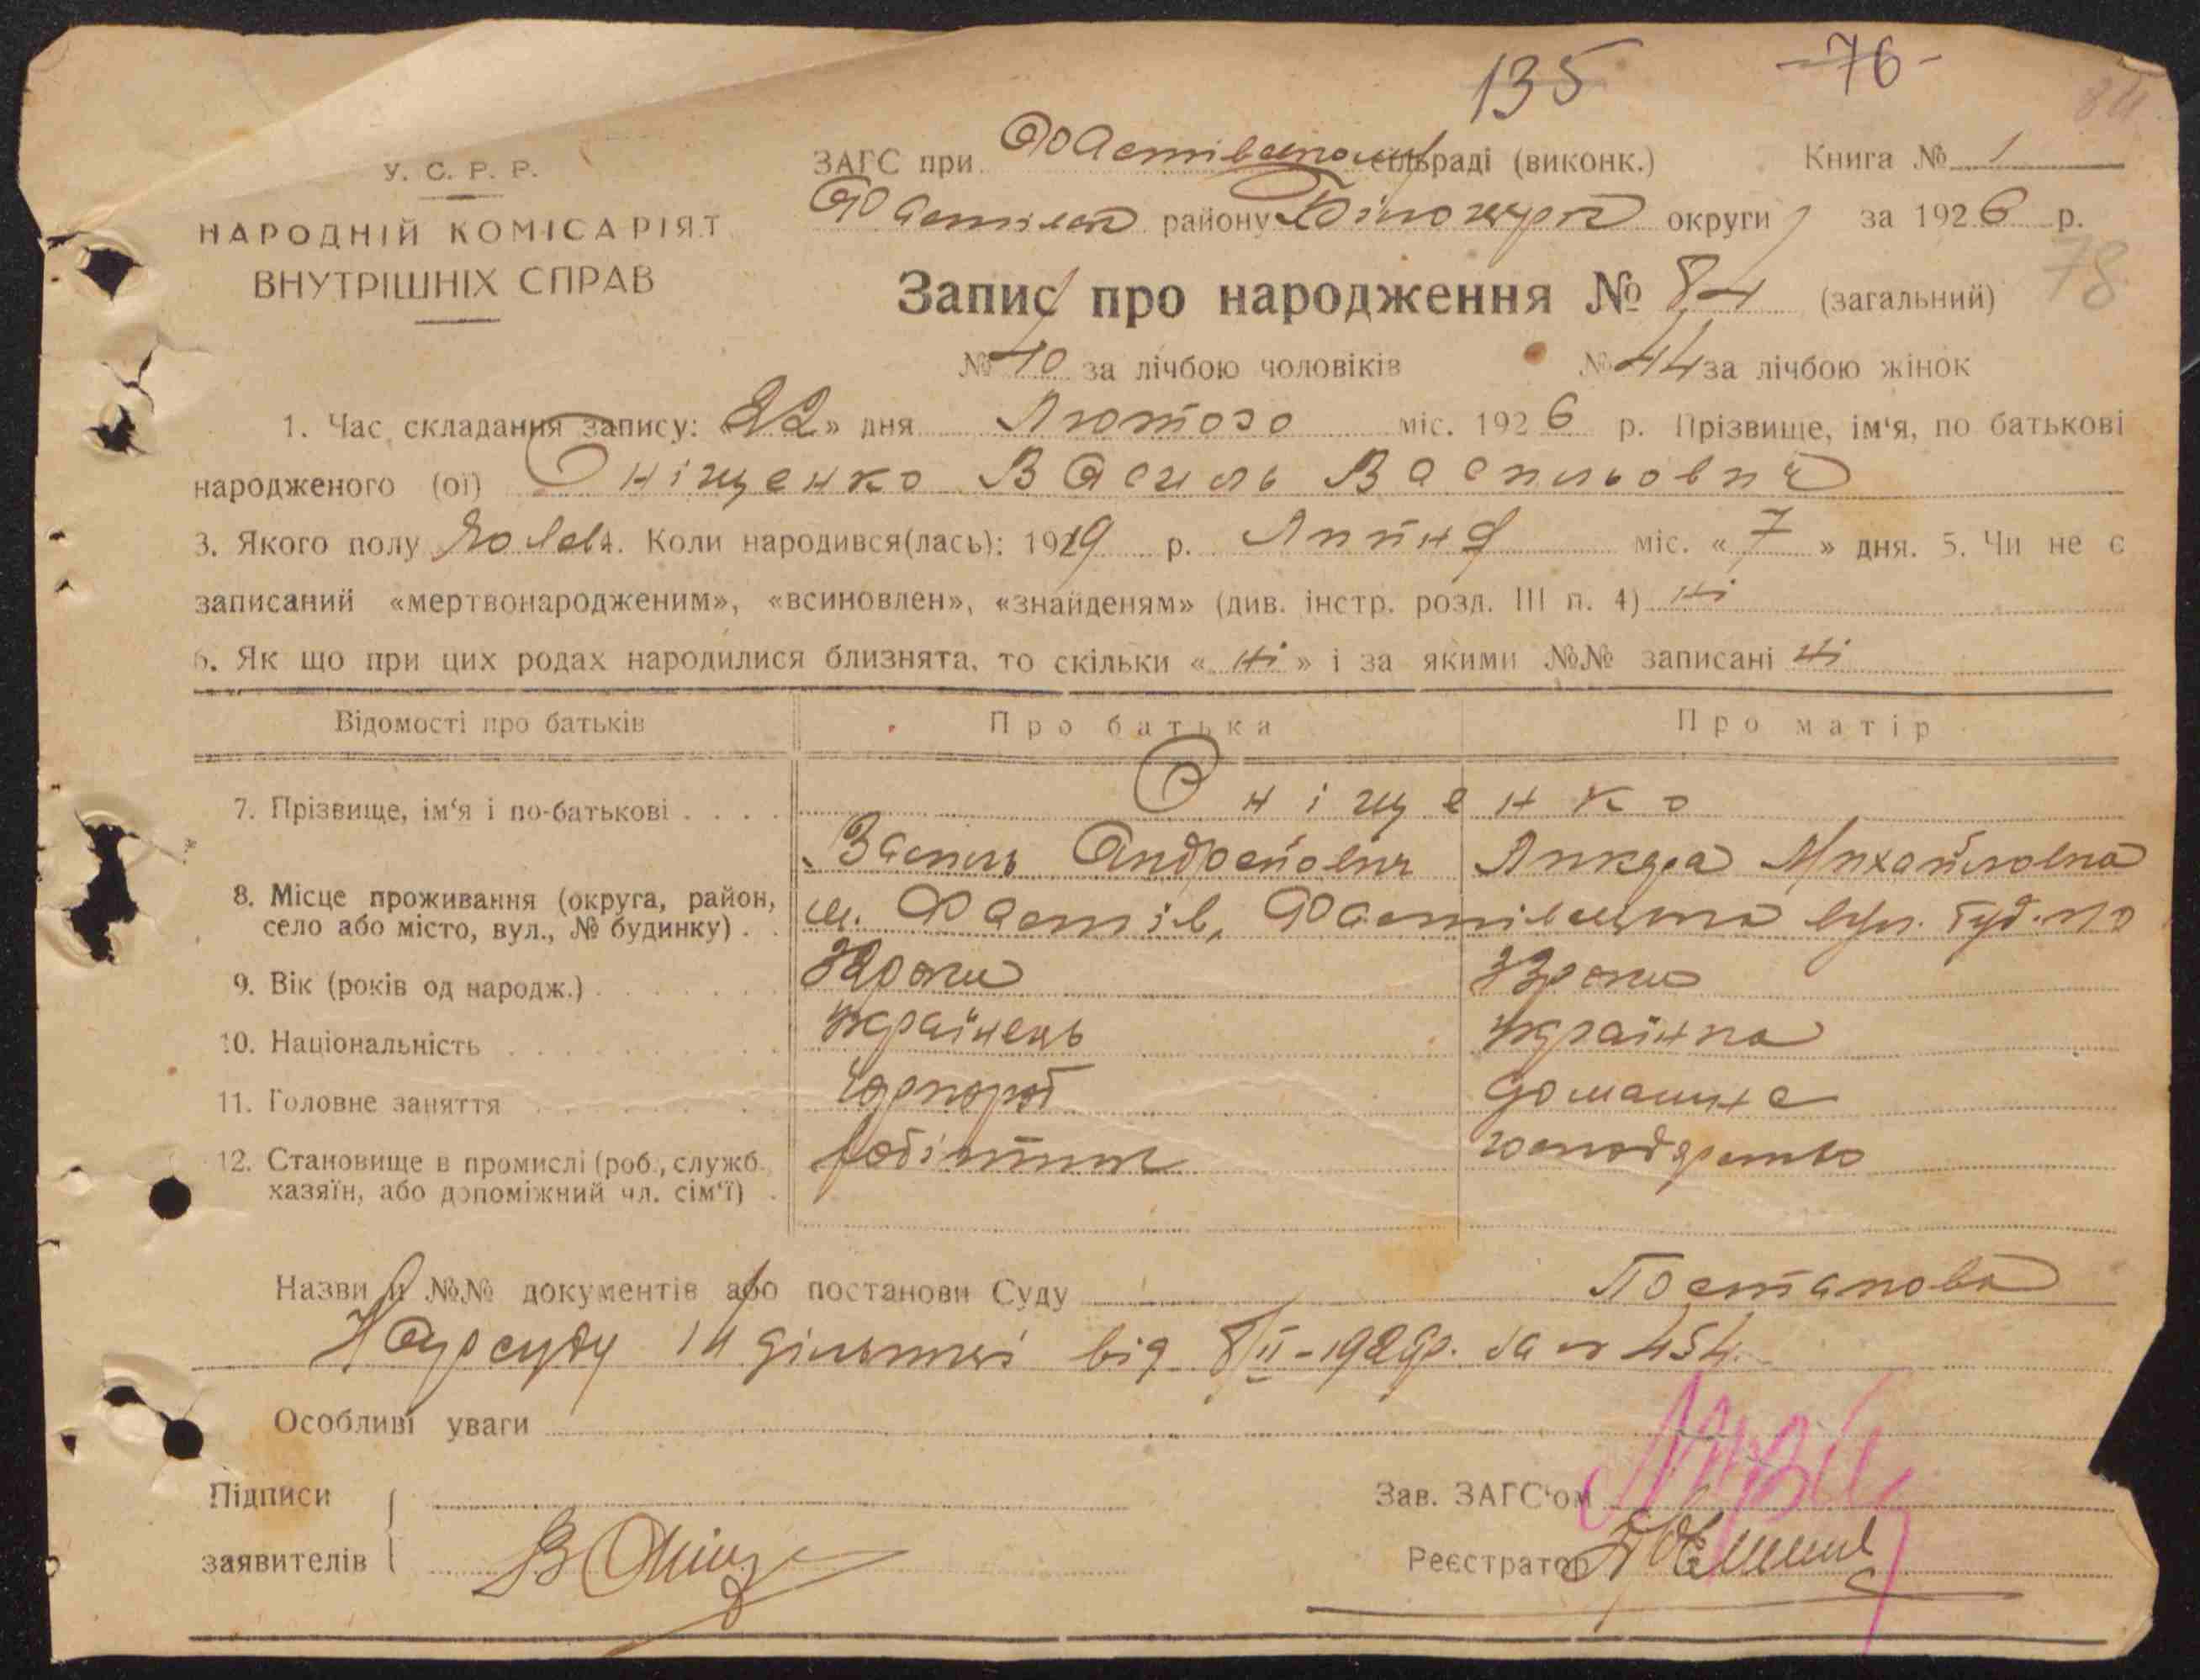 135 -76-
84
У. С. Р. Р.
ЗАГС при сільраді (виконк.) Книга № 1
району округи за 1926 р.
НАРОДНІЙ КОМІСАРІЯТ
ВНУТРІШНІХ СПРАВ
78
Запис про народження № 84 (загальний)
№ 40 за лічбою чоловіків № 44 за лічбою жінок
1. Час складання запису: «22» дня Лютого міс. 1926 р. Прізвище, ім'я, по батькові
народженого (ої) Оніщенко Василь Васильович
3. Якого полу Чолов. Коли народився(лась): 1919 р. Липня міс. «7» дня. 5. Чи не є
записаний «мертвонародженим», «всиновлен», «знайденям» (див. інстр. розд. III п. 4) ні
6. Як що при цих родах народилися близнята, то скільки «ні» і за якими №№ записані ні
Відомості про батьків Про батька Про матір
7. Прізвище, ім'я і по-батькові . . . . Оніщенко
Василь Андрейович Михайловна
8. Місце проживання (округа, район,
село або місто, вул., № будинку) . . м. Фастів, вул. буд.
9. Вік (років од народж.) роки 33 роки
10. Національність українець українка
11. Головне заняття чорнороб домашнє
12. Становище в промислі (роб., служб. робітник господарство
хазяїн, або допоміжний чл. сім'ї) .
Назви й №№ документів або постанови Суду Постанова
Нарсуду дільниці від 8/II-1926р. за № 454.
Особливі уваги
Підписи
Зав. ЗАГС'ом
заявителів
Реєстратор